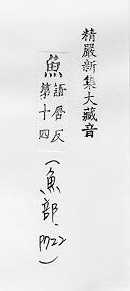 精嚴新集大藏音
魚語居反
第十四
(魚部.P722)